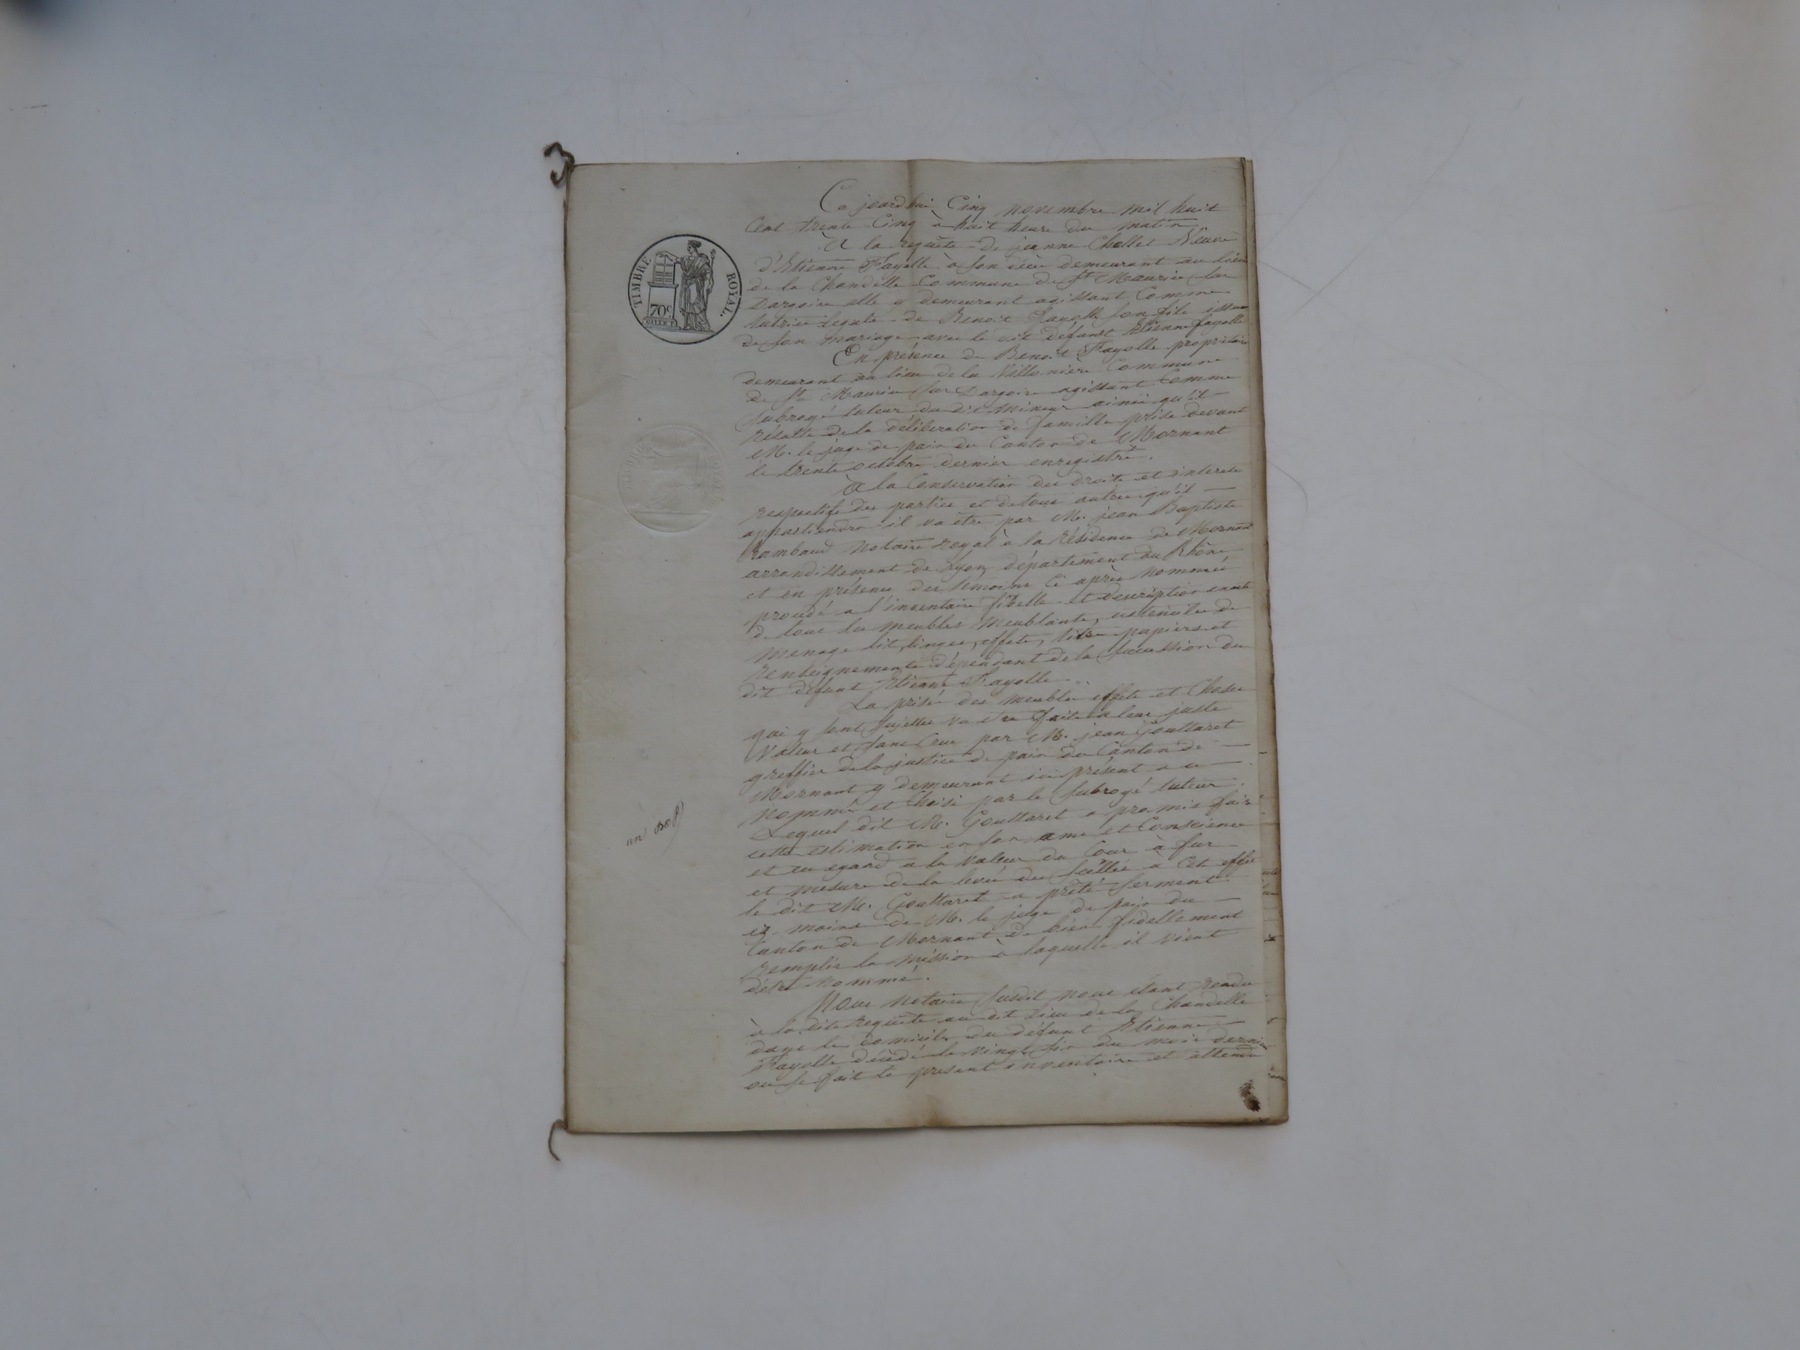 TIMBRE ROYAL.
70c
Ce jourd'hui Cinq novembre mil huit
Cent trente Cinq à huit heure du matin
A la requête de jeanne Chollet Veuve
d'Etienne Fayolle à son décès demeurant au lieu
de la Chandelle Commune de St Maurice sur
Dargoire elle y demeurant agissant Comme
tutrice légale de Benoit Fayolle son fils issu
de son mariage avec le dit défunt Etienne fayolle
En présence de Benoit Fayolle propriétaire
demeurant au lieu de la Commune
de St Maurice sur Dargoire agissant Comme
subrogé tuteur du dit mineur ainsi qu'il
résulte de la délibération de famille prise devant
M. le juge de paix du Canton de Mornant
le trente octobre dernier enregistré.
A la Conservation des droits et interets
respectifs des parties et de tous autres qu'il
appartiendra il va être par Me. jean Baptiste
rambaud Notaire royal à la résidence de Mornant
arrondissement de Lyon département du Rhône
et en présence des témoins Ci après Nommés
procédé a l'inventaire fidelle et description exacte
de tous les meubles meublants, ustensiles de
menage lit, linges, effets, titres papiers et
renseignements dépendant de la succession du
dit défunt Etienne Fayolle..
La prisée des meubles effets et Choses
qui y sont sujettes va être faite a leur juste
Valeur et sans Crue par Me. jean Gouttaret
greffier de la justice de paix du Canton de
Mornant y demeurant ici présent a ce
nommé et Choisi par le subrogé tuteur.
Lequel dit Me. Gouttaret a promis faire
cette estimation en son ame et Conscience
et eu egard a la valeur du Cour à fur
et mesure de la levée des scéllés a Cet effet
le dit Me. Gouttaret a prêté serment
ez mains de M. le juge de paix du
Canton de Mornant de bien fidellement
remplir la mission à laquelle il vient
d'être nommé.
Nous notaire susdit nous étant rendu
à la dite requête au dit lieu de la Chandelle
dans le domicile du défunt Etienne
Fayolle décédé le vingt six du mois dernier
ou se fait le present inventaire et attendu